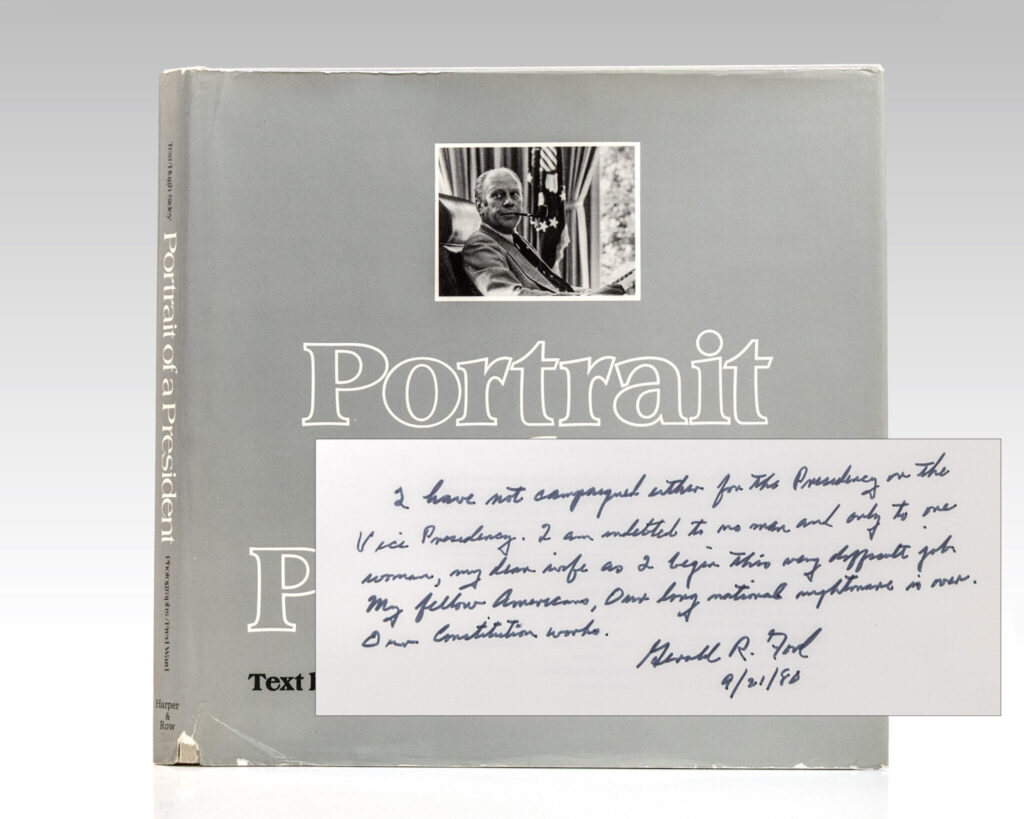 Text/Hugh Sidey Portrait of a President Photographs/Fred Ward
Harper
&
Row
Portrait
P
Text
I have not campaigned either for the Presidency or the
Vice Presidency. I am indebted to no man and only to one
woman, my dear wife as I begin this very difficult job.
My fellow Americans, Our long national nightmare is over.
Our Constitution works.
Gerald R. Ford
9/21/90